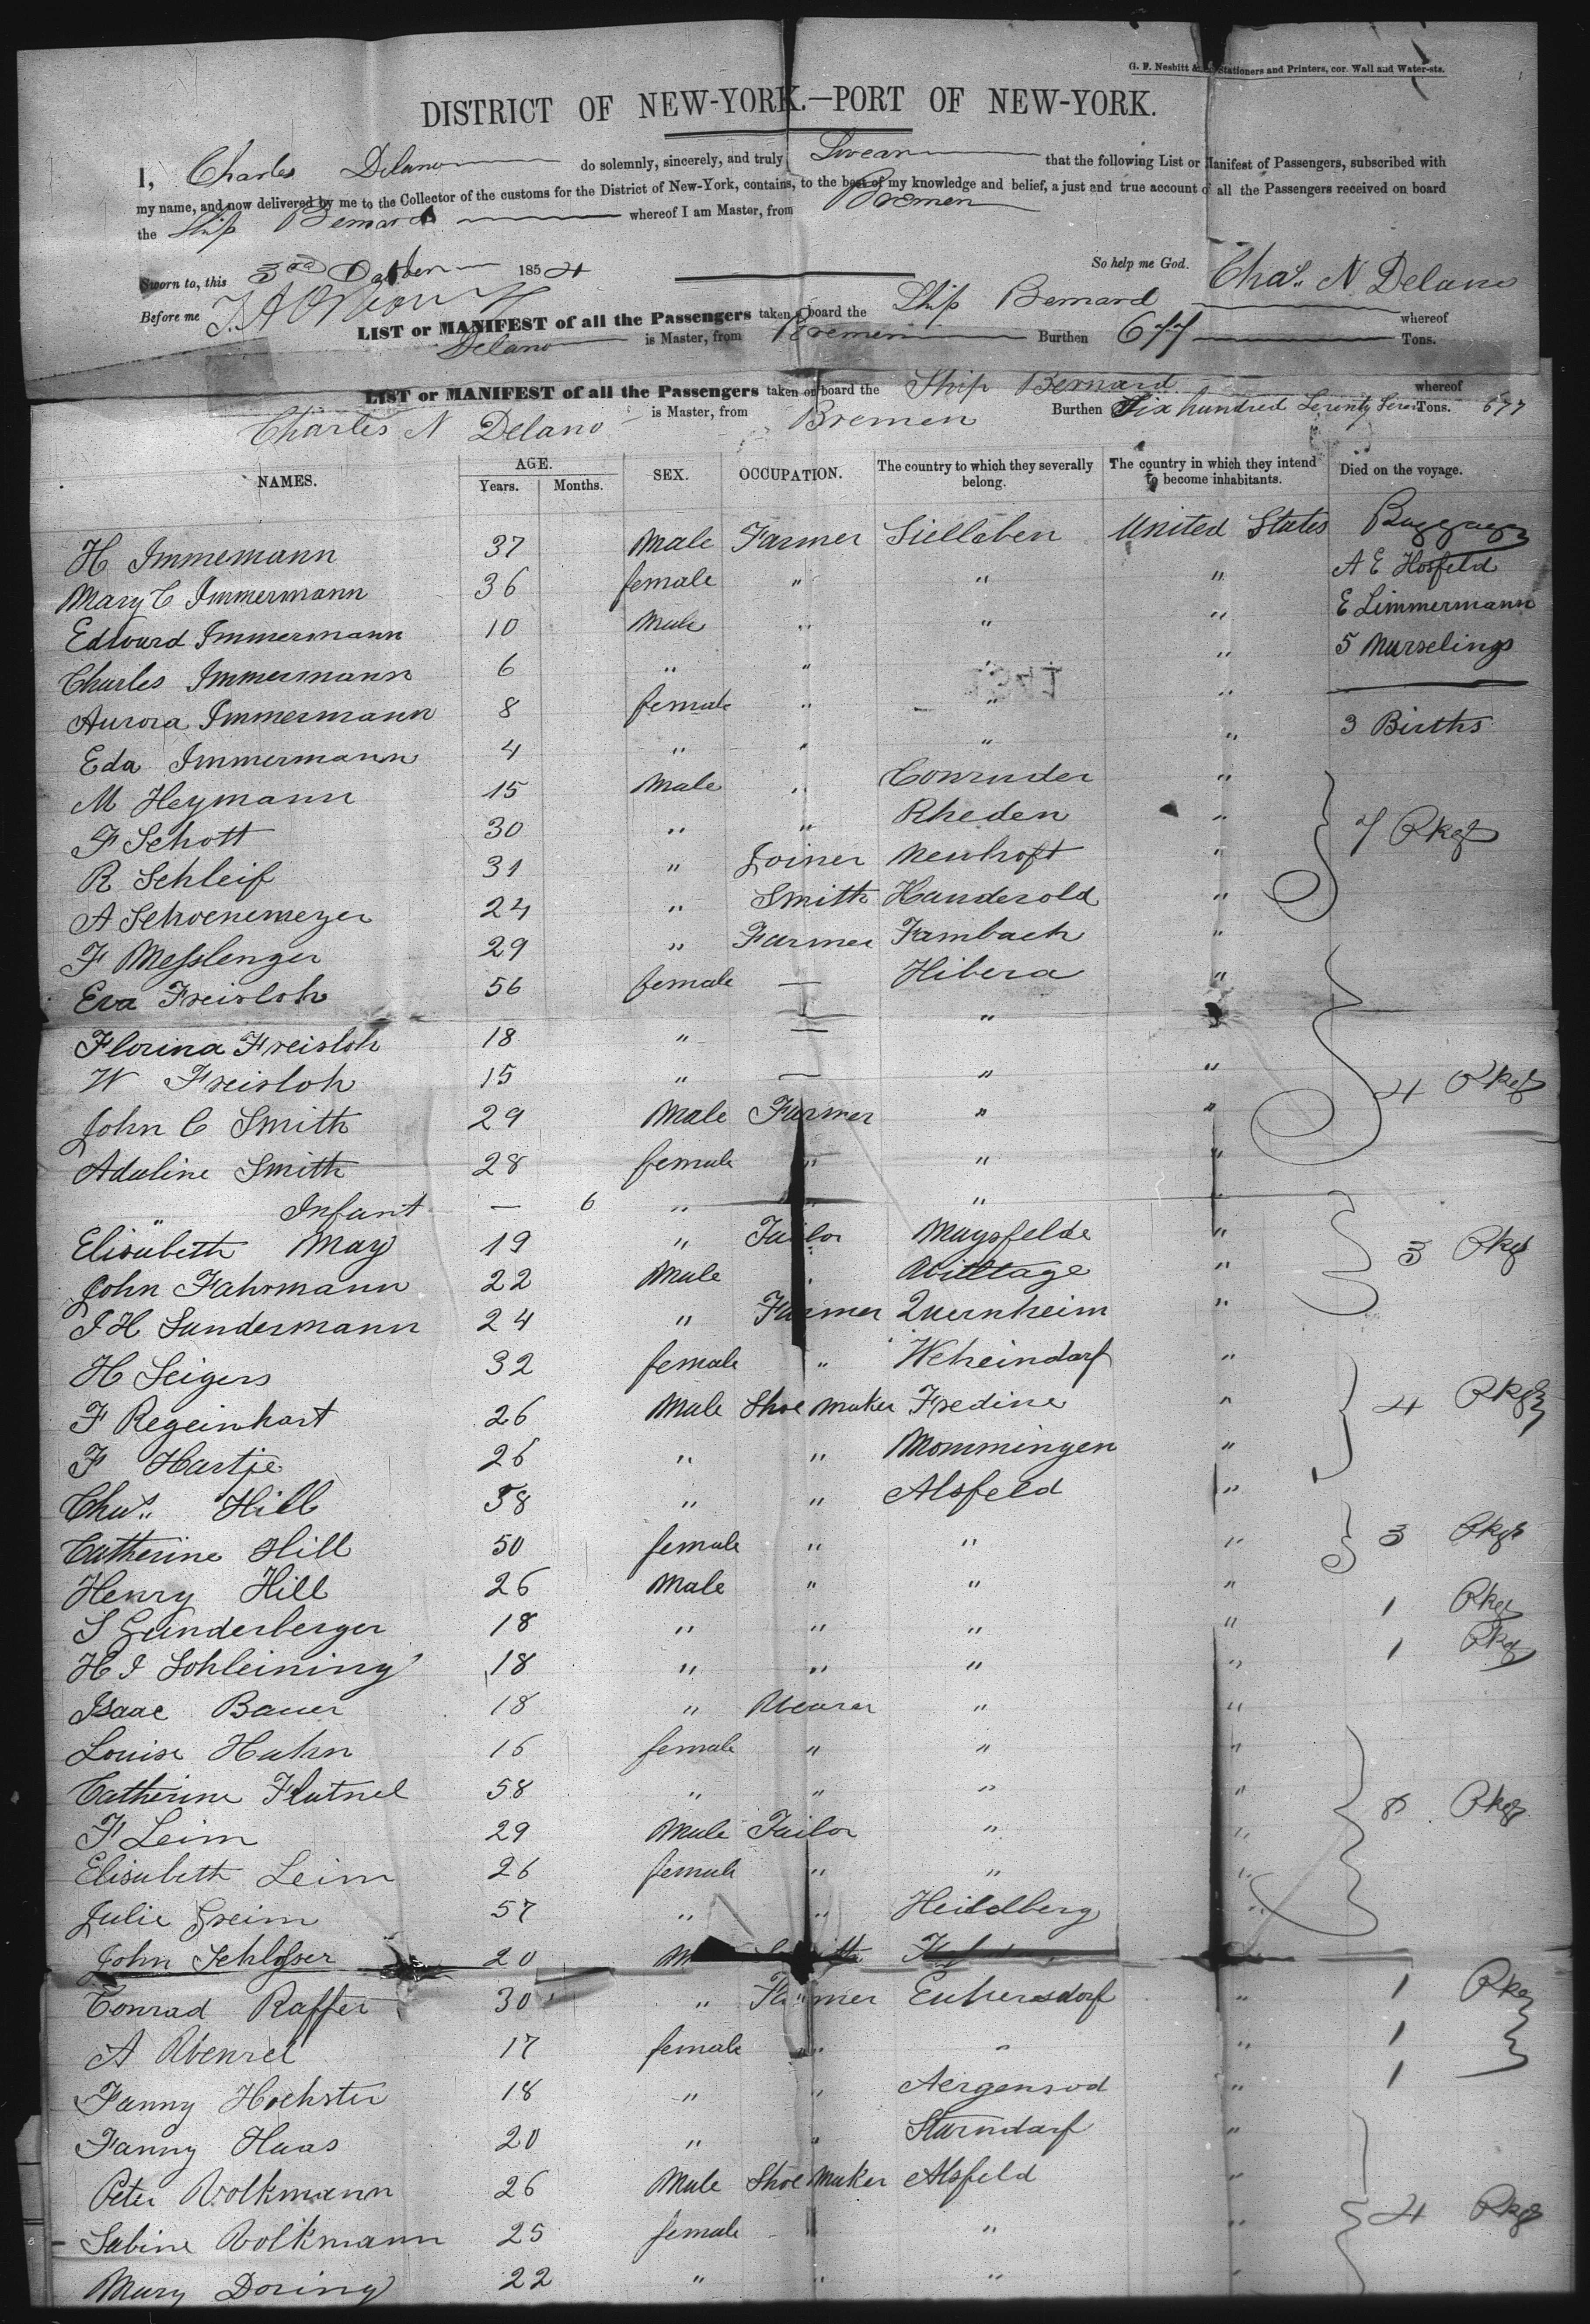 G. F. Nesbitt & Stationers and Printers, cor. Wall and Water-sts.
DISTRICT OF NEW-YORK.—PORT OF NEW-YORK.
I, Charles Delano do solemnly, sincerely, and truly Swear that the following List or Manifest of Passengers, subscribed with
my name, and now delivered by me to the Collector of the customs for the District of New-York, contains, to the best of my knowledge and belief, a just and true account of all the Passengers received on board
the Ship Bernard whereof I am Master, from Bremen
Sworn to, this 3rd October 1854 So help me God. Chas. N. Delano
Before me
LIST or MANIFEST of all the Passengers taken board the Ship Bernard whereof
Delano is Master, from Bremen Burthen 677 Tons.
LIST or MANIFEST of all the Passengers taken on board the Ship Bernard whereof
Charles N Delano is Master, from Bremen Burthen Six hundred Seventy Seven Tons. 677
NAMES. AGE. Years. Months. SEX. OCCUPATION. The country to which they severally belong. The country in which they intend to become inhabitants. Died on the voyage.
H Immemann 37 Male Farmer Sielleben United States Baggage
Mary C Immermann 36 female " " " A E Hosfeld
Edward Immermann 10 Male " " " E Limmermann
Charles Immermann 6 " " " " 5 Nurselings
Aurora Immermann 8 female " " "
Eda Immermann 4 " " " " 3 Births
M Heymann 15 Male " Conruder "
F Schott 30 " " Rheden " 7 Pkgs
R Schleif 31 " Joiner Neuhoft "
A Schoenemeyer 24 " Smith Handerold "
F Messlenger 29 " Farmer Fambach "
Eva Freisloh 56 female — Hibera "
Florina Freisloh 18 " — "
W Freisloh 15 " — " " 4 Pkgs
John C Smith 29 Male Farmer " "
Adaline Smith 28 female " " "
" Infant — 6 " " " "
Elisabeth May 19 " Tailor Maysfelde " 3 Pkgs
John Fahrmann 22 Male " Wittlage "
J H Sundermann 24 " Farmer Quernheim "
H Seigers 32 female " Weheindorf "
F Regeinhart 26 Male Shoe maker Fredine " 4 Pkgs
F Hartje 26 " " Mommingen "
Chas. Hill 58 " " Alsfeld "
Catherine Hill 50 female " " " 3 Pkgs
Henry Hill 26 Male " " "
S Gunderberger 18 " " " " 1 Pkg
H J Sohleining 18 " " " " 1 Pkg
Isaac Bauer 18 " Weaver " "
Louise Hahn 16 female " " "
Catherine Flutnel 58 " " " "
F Leim 29 Male Tailor " " 8 Pkgs
Elisabeth Leim 26 female " " "
Julie Greim 57 " " Heildberg "
John Schlosser 20
Conrad Raffer 30 " Farmer Euhersdorf " 1 Pkg
A Wenzel 17 female " " " 1
Fanny Hochster 18 " " Aergensod " 1
Fanny Haas 20 " " Sturndorf "
Peter Volkmann 26 Male Shoe Maker Alsfeld "
Sabine Volkmann 25 female " " " 4 Pkgs
Mary Doring 22 " " " "